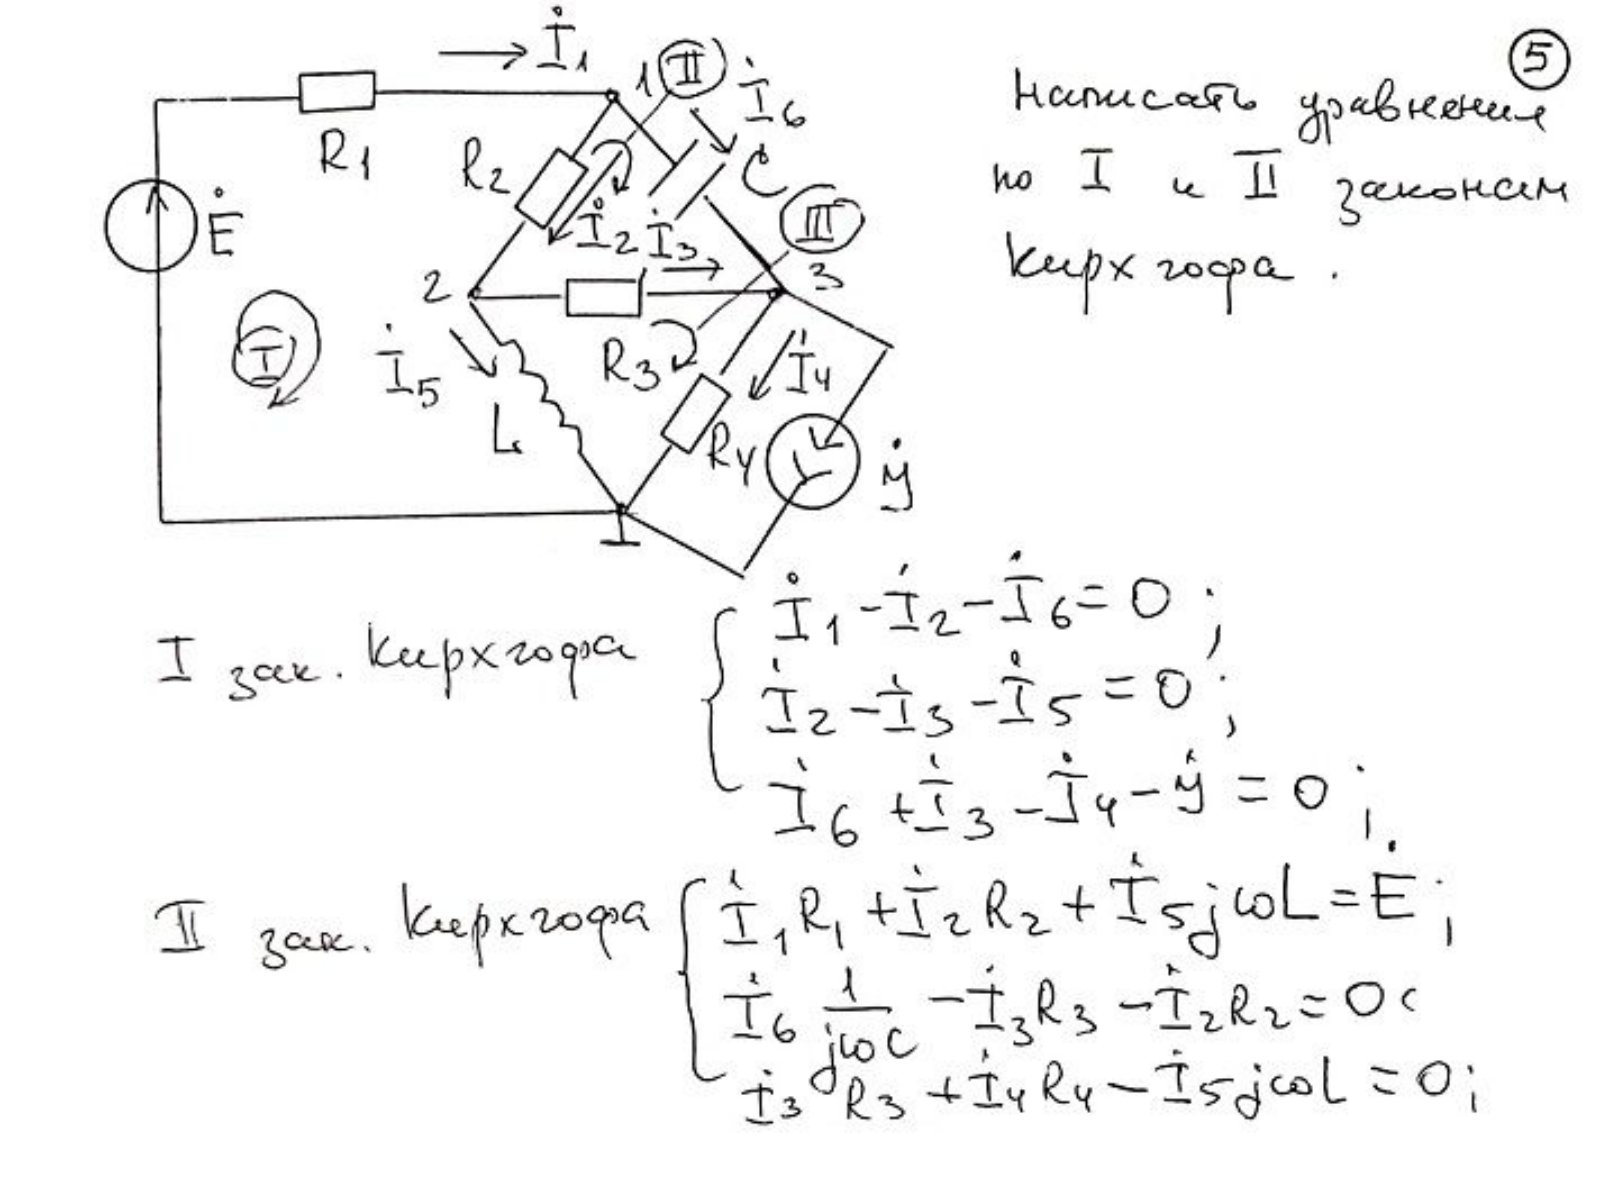 5
Написать уравнения
по I и II законам
Кирхгофа.
İ1
1
II
İ6
R1
R2
C
Ė
İ2
İ3
III
2
3
I
İ5
R3
İ4
L
R4
J̇
I зак. Кирхгофа
İ1 - İ2 - İ6 = 0;
İ2 - İ3 - İ5 = 0;
İ6 + İ3 - İ4 - J̇ = 0;
II зак. Кирхгофа
İ1R1 + İ2R2 + İ5jωL = Ė;
İ6 1/jωC - İ3R3 - İ2R2 = 0
İ3 R3 + İ4R4 - İ5jωL = 0;